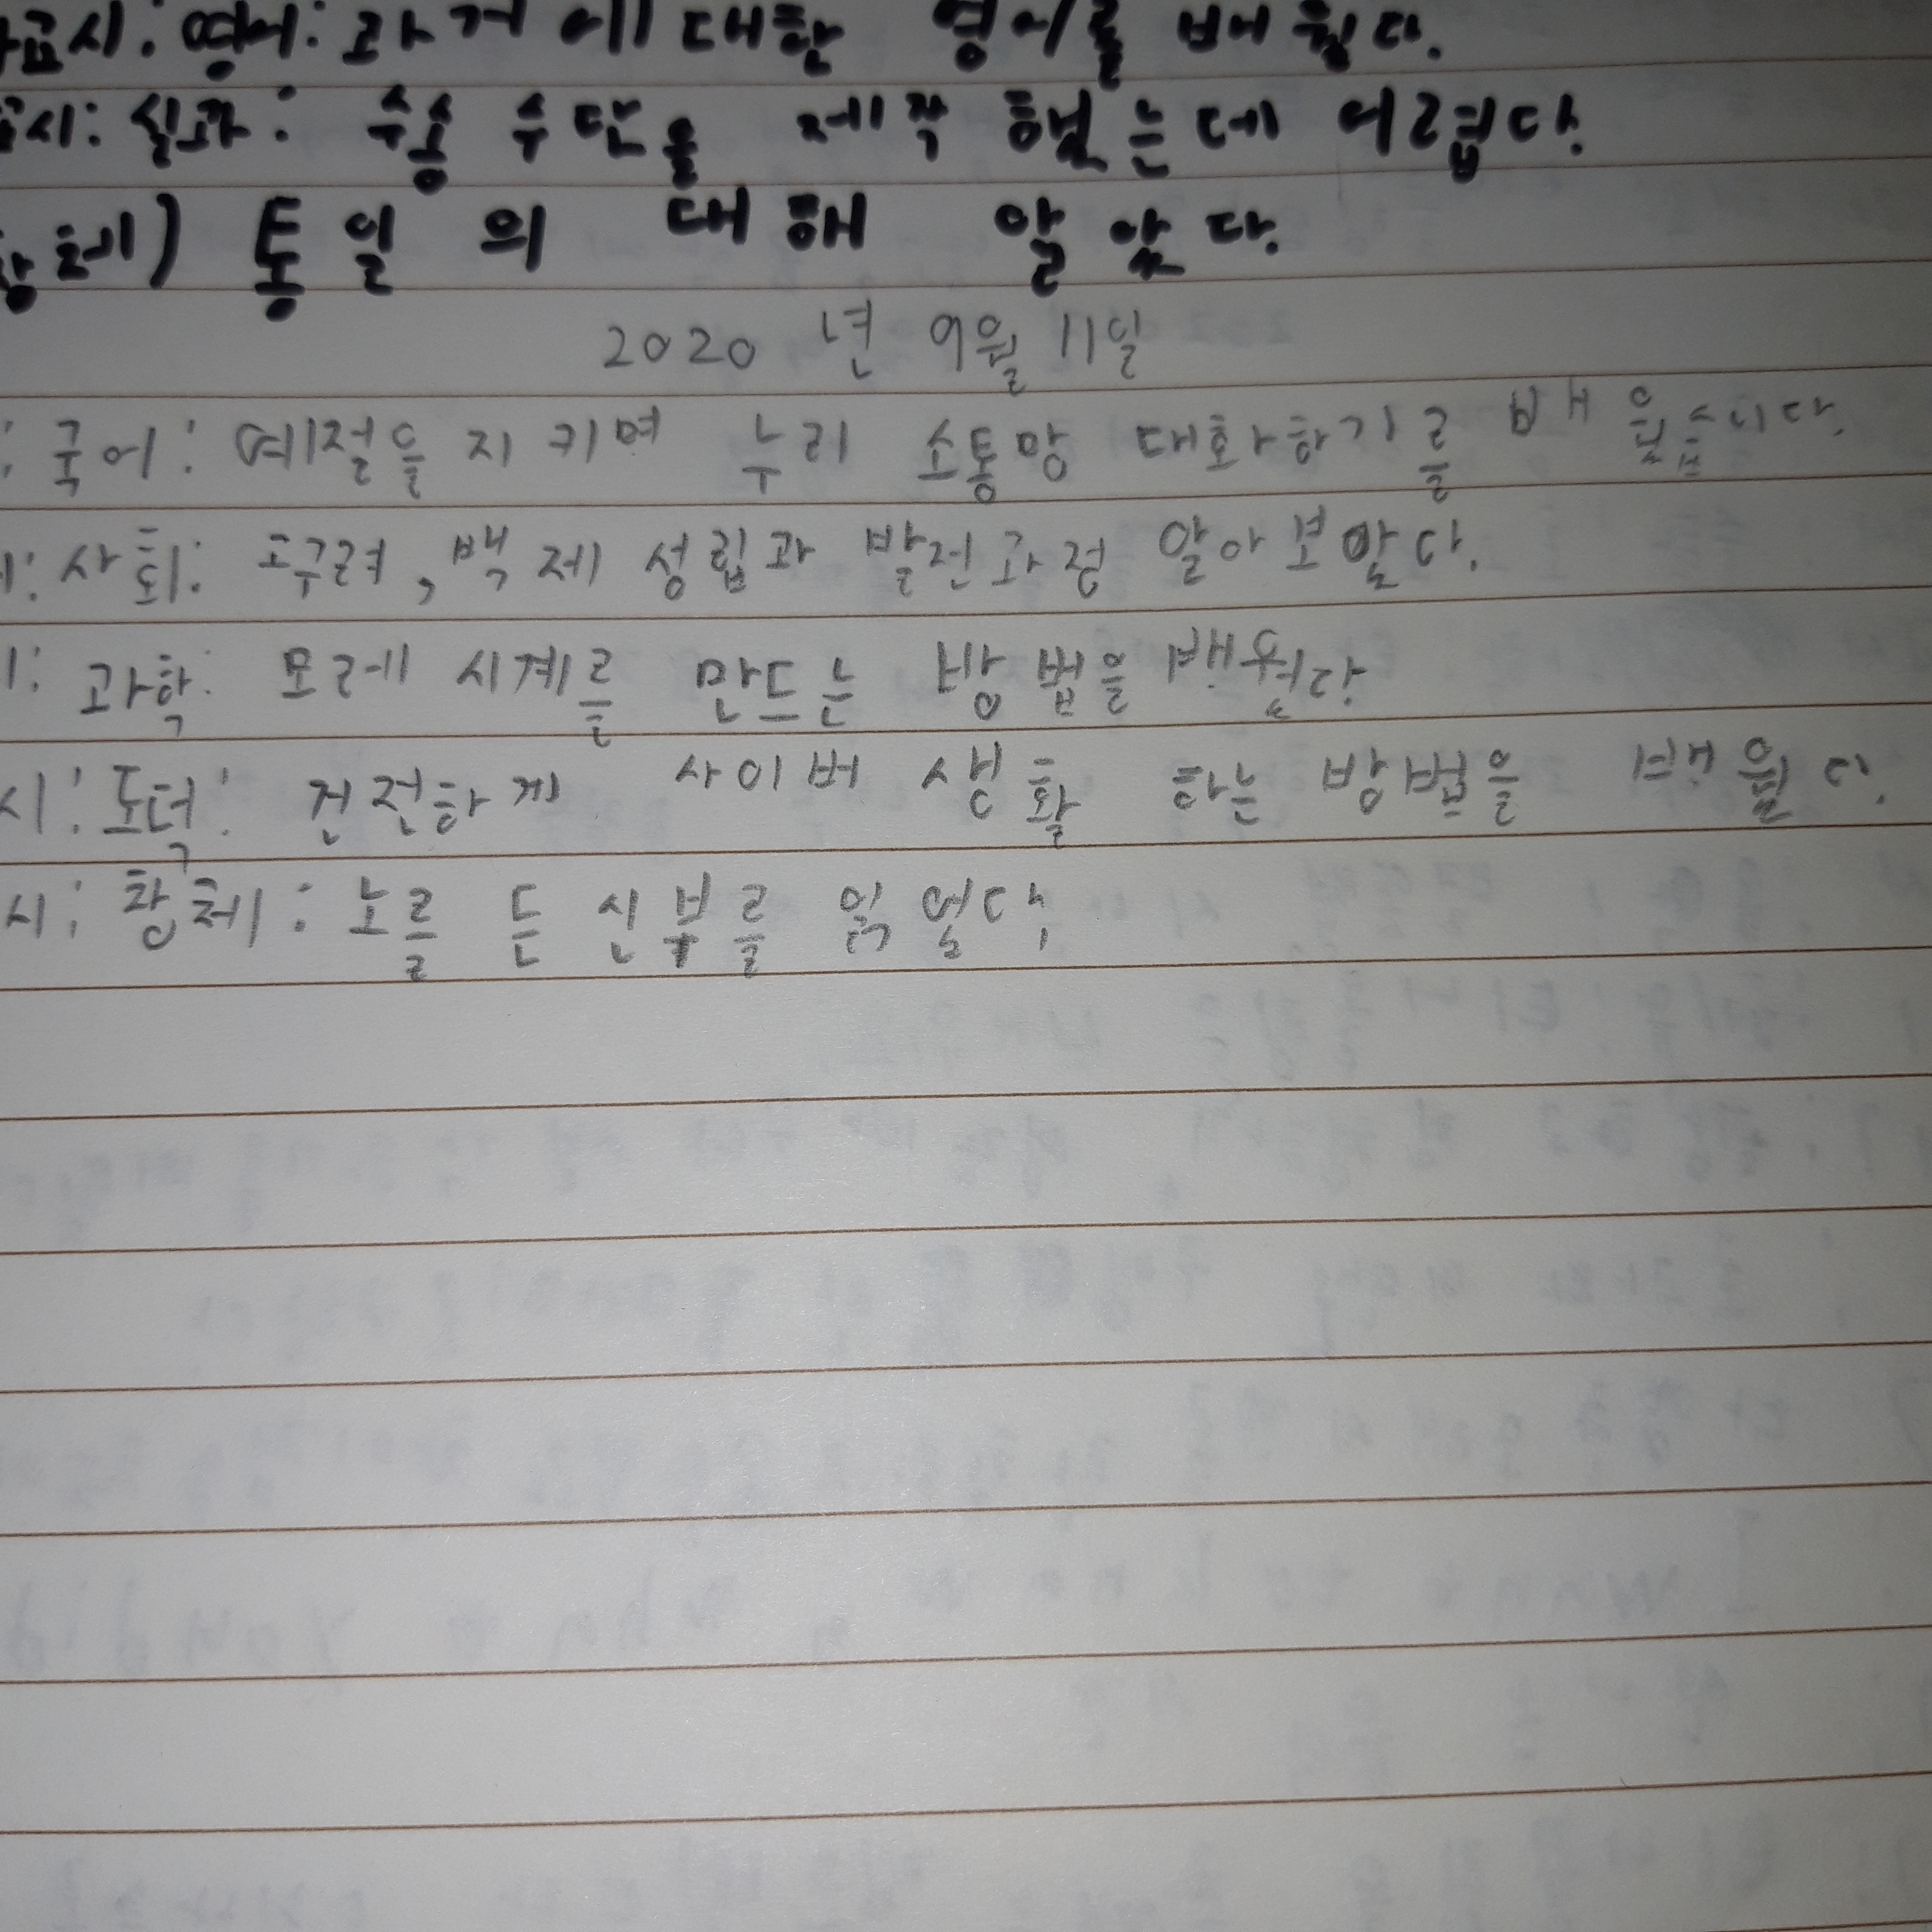 교시: 영어: 과거에 대한 영어를 배웠다.
교시: 실과: 수송 수단을 제작 했는데 어렵다.
창체) 통일 의 대해 알았다.
2020년 9월 11일
: 국어: 예절을 지키며 누리 소통망 대화하기를 배웠습니다.
: 사회: 고구려, 백제 성립과 발전과정 알아보았다.
: 과학: 모레 시계를 만드는 방법을 배웠다
시: 도덕: 건전하게 사이버 생활 하는 방법을 배웠다.
시: 창체: 노르 든 신부를 읽었다.